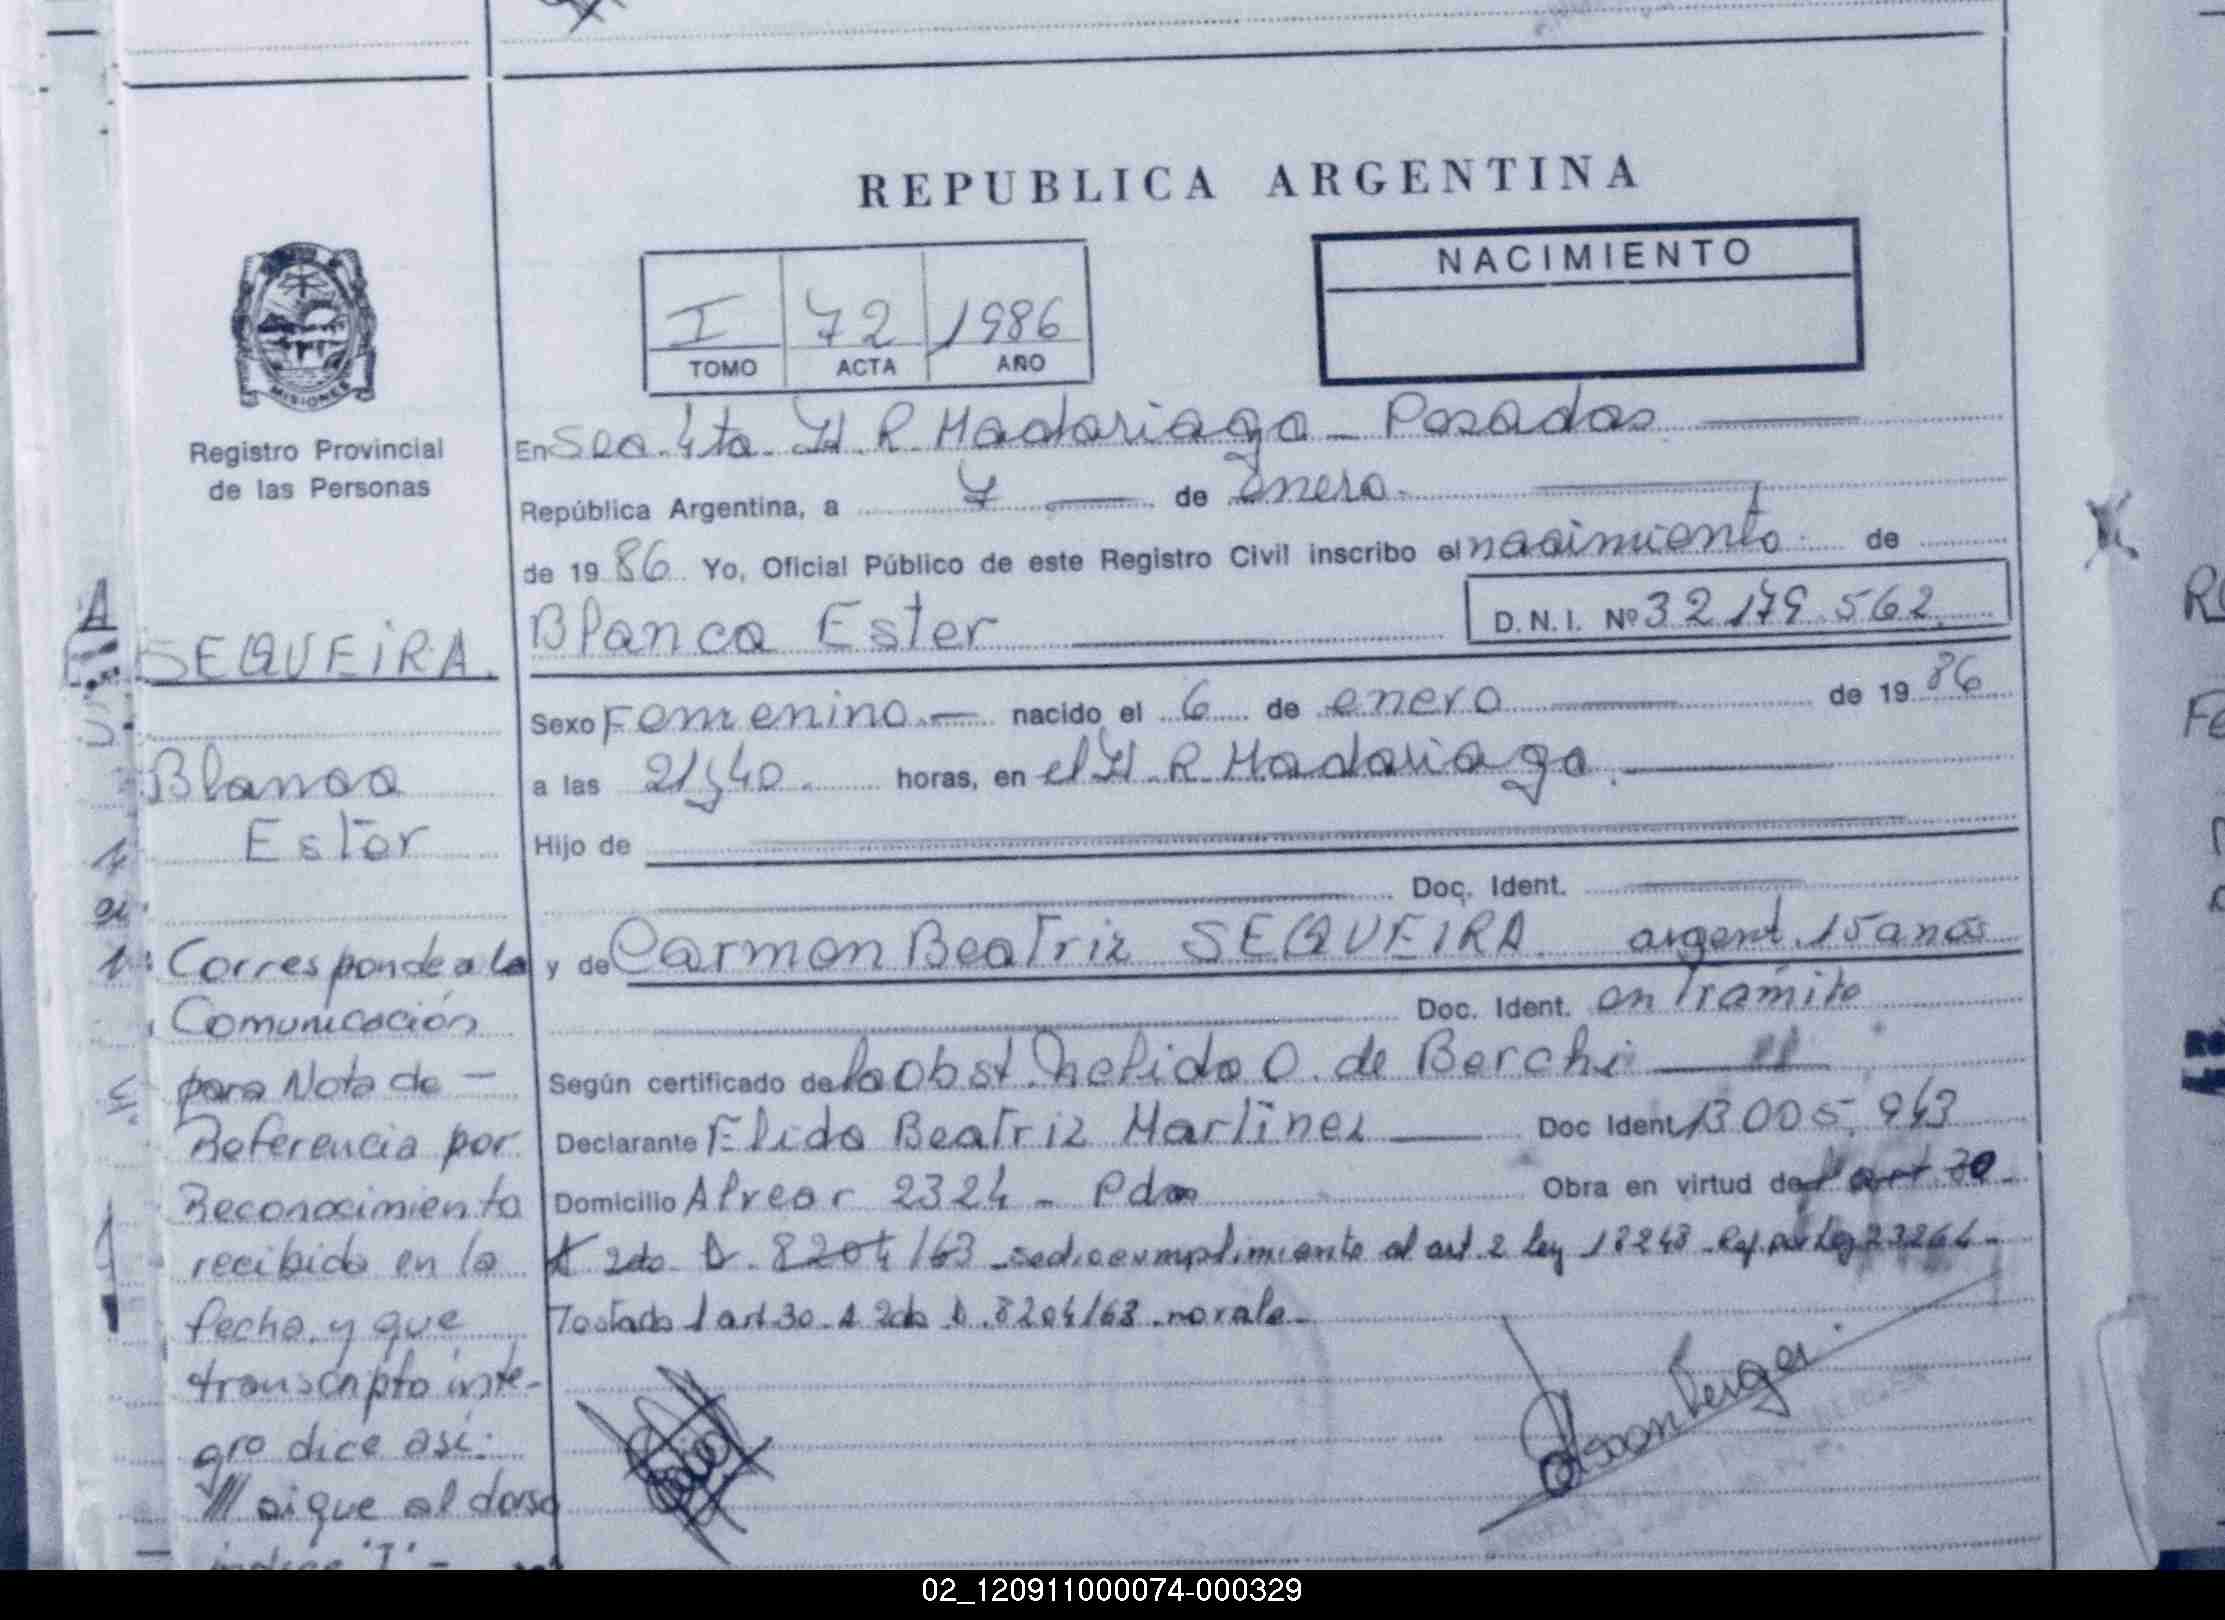 REPUBLICA ARGENTINA
NACIMIENTO
I 72 1986
TOMO ACTA AÑO
MISIONES
Registro Provincial
de las Personas
En Sec. 4ta. H. R. Madariaga - Posadas
República Argentina, a 7 de enero.
de 19 86 Yo, Oficial Público de este Registro Civil inscribo el nacimiento de
Blanca Ester D.N.I. Nº 32.179.562.
Sexo Femenino.- nacido el 6 de enero de 19 86
a las 21,40. horas, en el H. R. Madariaga.
Hijo de
Doc. Ident.
y de Carmen Beatriz SEQUEIRA. argent. 15 años
Doc. Ident. en Trámite
Según certificado de la obst. Nelida O. de Berchi
Declarante Elida Beatriz Martinez Doc Ident. 13.005.943
Domicilio Alvear 2324 - Pdas Obra en virtud del art 30
A 2do. D. 8204/63 - se dio cumplimiento al art. 2 Ley 18248 - Ref. por Ley 23264 -
Testado l art 30. A 2do D. 8204/63. no vale.-
SEQUEIRA.
Blanca
Ester
Corresponde a la
Comunicación
para Nota de -
Referencia por
Reconocimiento
recibida en la
fecha y que
transcripta inte-
gro dice así:
/// sigue al dorso
02_120911000074-000329